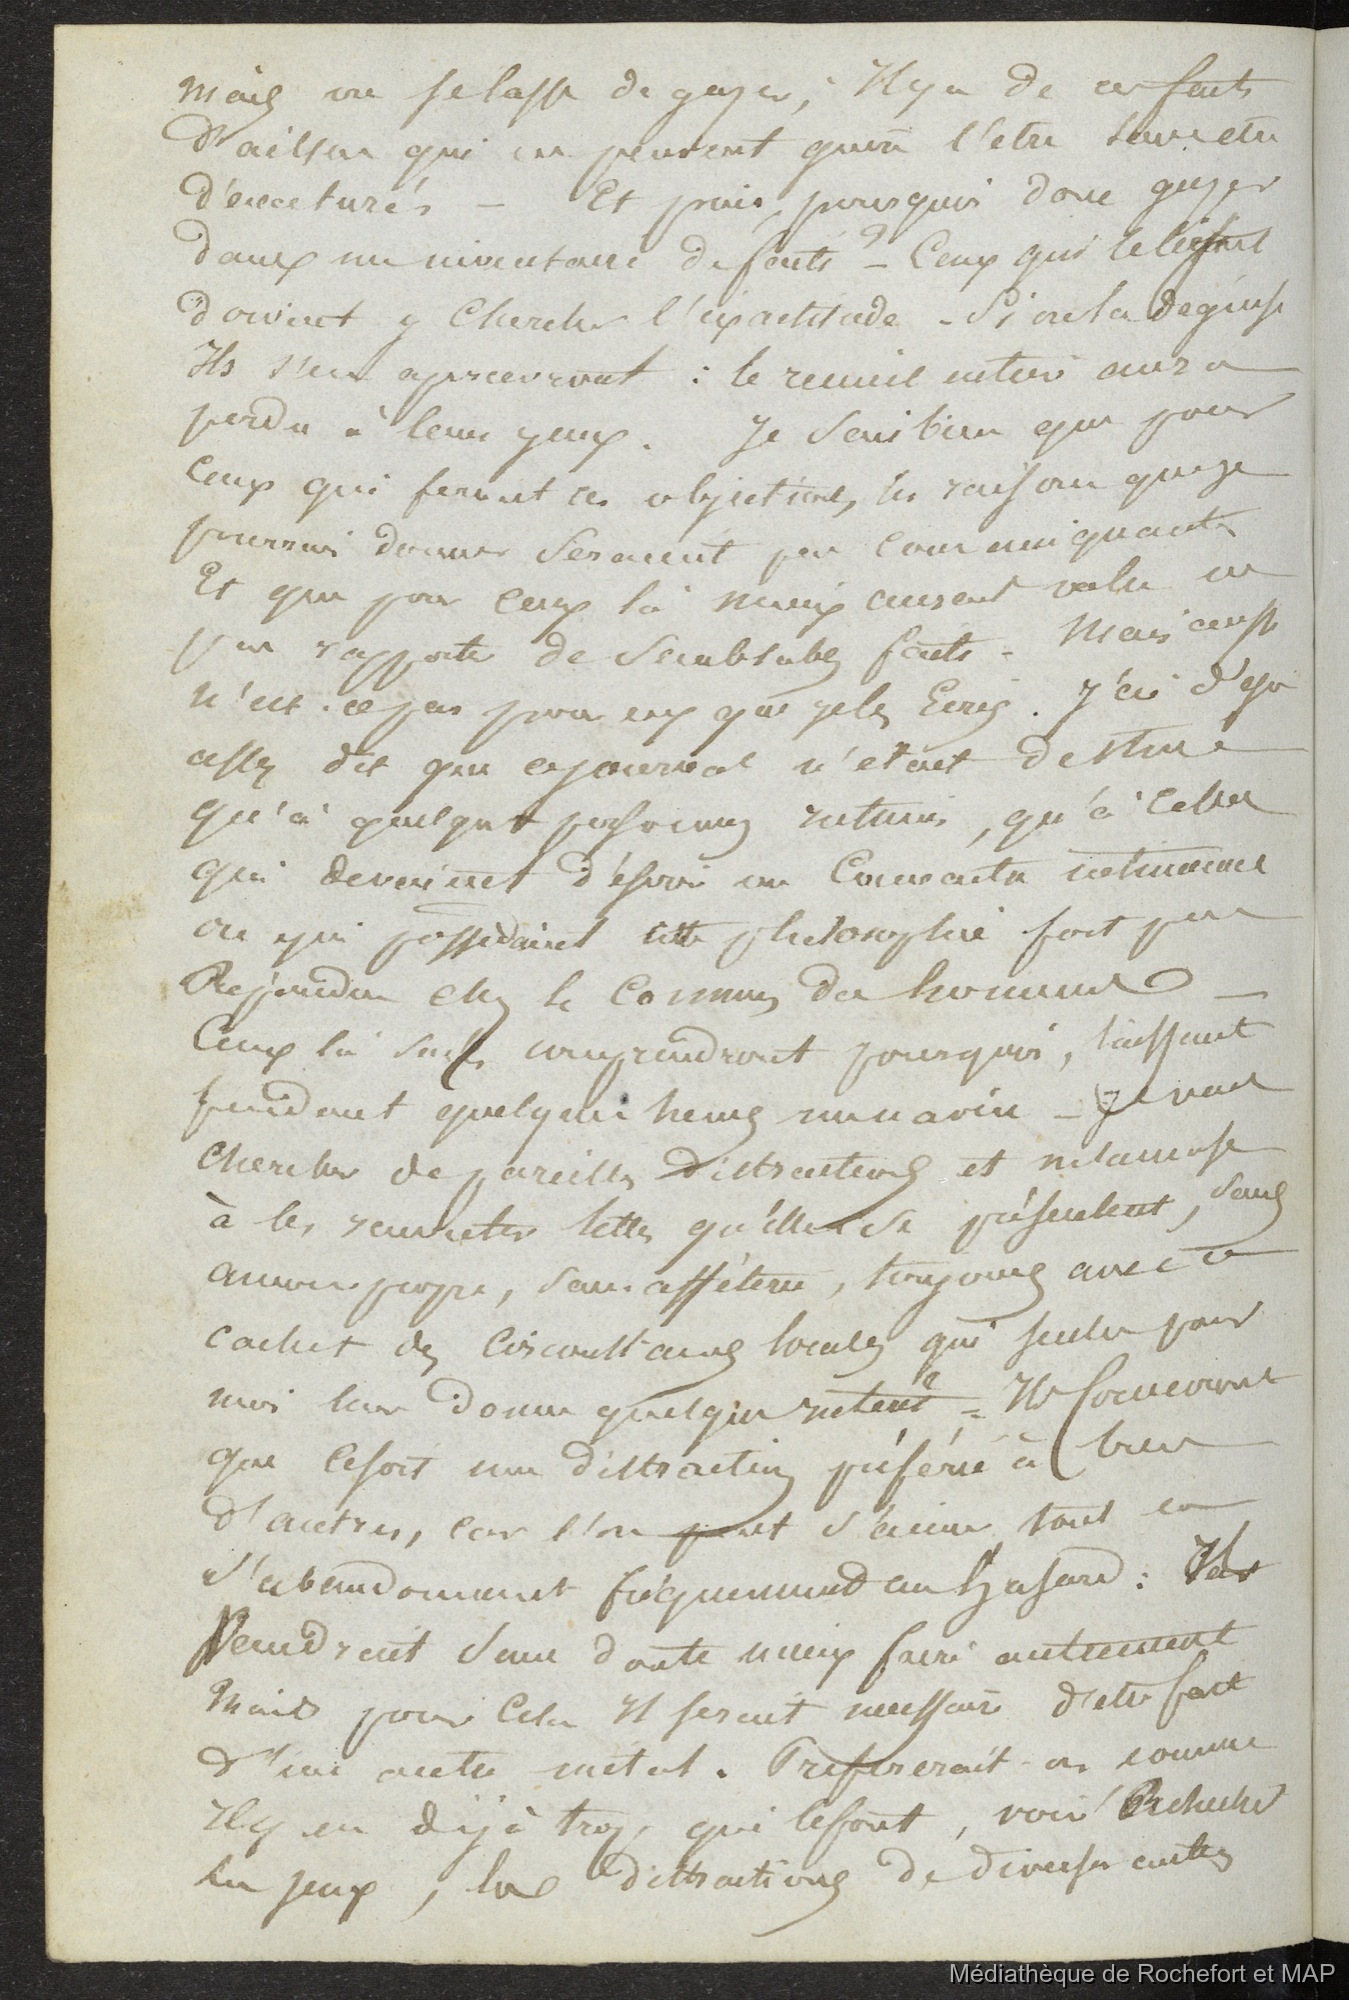 Mais on se lasse de gazer ; Il y a de ces faits
D'ailleurs qui ne peuvent guere l'être sans etre
Dénaturés — Et puis, pourquoi donc gazer
Dans un inventaire de faits ? — Ceux qui le lisent
Doivent y chercher l'exactitude — Si on la deguise
Ils s'en apercevront : le recueil entier aura
perdu à leurs yeux. Je sens bien que pour
Ceux qui feront ces objections, les raisons que je
pourrai donner seraient peu
Et que pour ceux là mieux aurait valu ne
pas rapporter de semblables faits - Mais aussi
n'est-ce pas pour eux que je les Ecris. J'ai deja
assez dit que ce journal n'etait Destiné
qu'à quelques personnes intimes, qu'à celles
qui
ou qui possedaient cette philosophie fort peu
Repandue chez le commun des hommes —
Ceux là seuls comprendront pourquoi, laissant
pendant quelques heures mon navire — Je vais
chercher de pareilles Distractions et m'amuse
à les raconter telles qu'elles se présentent, sans
amour propre, sans affèterie, toujours avec ce
cachet des Circonstances locales qui seules pour
moi leur donne quelque interet = Ils
que ce soit une distraction préférée à bien
d'autres, car l'on peut s'aimer tout en
s'abandonnant fréquemment au hasard : Il
Vaudrait sans doute mieux faire autrement
Mais pour cela Il serait necessaire d'etre fait
D'un autre métal. Prefererait-on comme
Il y en a déjà trop qui le font, voir Rechercher
Le jeux, les distractions de diverses
Médiathèque de Rochefort et MAP